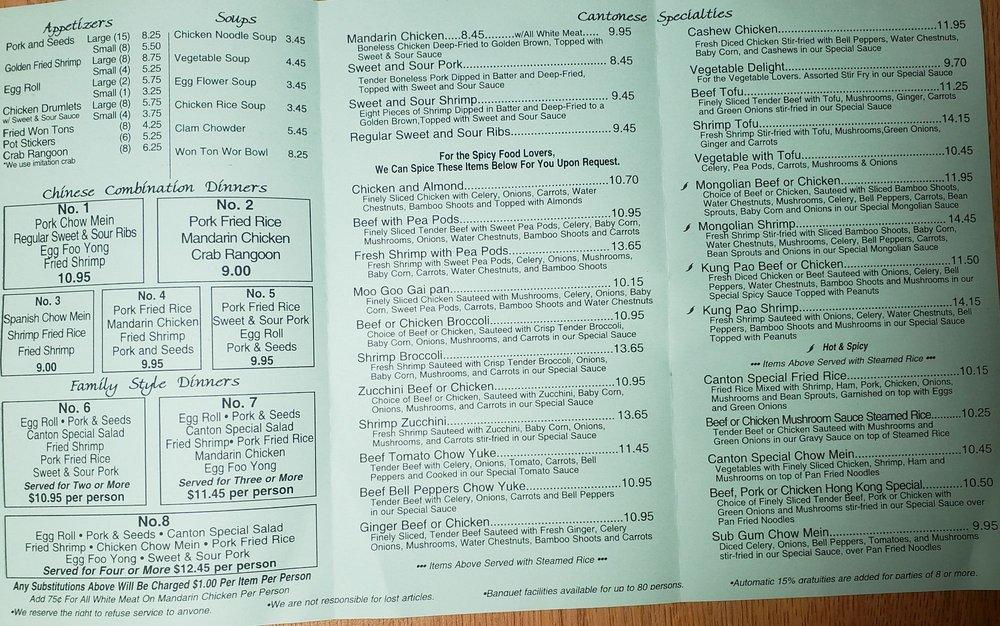 Appetizers
Pork and Seeds Large (15) 8.25
Small (8) 5.50
Golden Fried Shrimp Large (8) 8.75
Small (4) 5.25
Egg Roll Large (2) 5.75
Small (1) 3.25
Chicken Drumlets Large (8) 5.75
w/ Sweet & Sour Sauce Small (4) 3.75
Fried Won Tons (8) 4.25
Pot Stickers (6) 5.25
Crab Rangoon (8) 6.25
*We use imitation crab
Soups
Chicken Noodle Soup 3.45
Vegetable Soup 4.45
Egg Flower Soup 3.45
Chicken Rice Soup 3.45
Clam Chowder 5.45
Won Ton Wor Bowl 8.25
Chinese Combination Dinners
No. 1
Pork Chow Mein
Regular Sweet & Sour Ribs
Egg Foo Yong
Fried Shrimp
10.95
No. 2
Pork Fried Rice
Mandarin Chicken
Crab Rangoon
9.00
No. 3
Spanish Chow Mein
Shrimp Fried Rice
Fried Shrimp
9.00
No. 4
Pork Fried Rice
Mandarin Chicken
Fried Shrimp
Pork and Seeds
9.95
No. 5
Pork Fried Rice
Sweet & Sour Pork
Egg Roll
Pork & Seeds
9.95
Family Style Dinners
No. 6
Egg Roll • Pork & Seeds
Canton Special Salad
Fried Shrimp
Pork Fried Rice
Sweet & Sour Pork
Served for Two or More
$10.95 per person
No. 7
Egg Roll • Pork & Seeds
Canton Special Salad
Fried Shrimp• Pork Fried Rice
Mandarin Chicken
Egg Foo Yong
Served for Three or More
$11.45 per person
No.8
Egg Roll • Pork & Seeds • Canton Special Salad
Fried Shrimp • Chicken Chow Mein • Pork Fried Rice
Egg Foo Yong • Sweet & Sour Pork
Served for Four or More $12.45 per person
Any Substitutions Above Will Be Charged $1.00 Per Item Per Person
Add 75¢ For All White Meat On Mandarin Chicken Per Person
•We reserve the right to refuse service to anyone.
•We are not responsible for lost articles.
Cantonese Specialties
Mandarin Chicken.....8.45.........w/All White Meat..... 9.95
Boneless Chicken Deep-Fried to Golden Brown, Topped with
Sweet & Sour Sauce
Sweet and Sour Pork.......... 8.45
Tender Boneless Pork Dipped in Batter and Deep-Fried,
Topped with Sweet and Sour Sauce
Sweet and Sour Shrimp.......... 9.45
Eight Pieces of Shrimp Dipped in Batter and Deep-Fried to a
Golden Brown,Topped with Sweet and Sour Sauce
Regular Sweet and Sour Ribs.......... 9.45
For the Spicy Food Lovers,
We Can Spice These Items Below For You Upon Request.
Chicken and Almond.......... 10.70
Finely Sliced Chicken with Celery, Onions, Carrots, Water
Chestnuts, Bamboo Shoots and Topped with Almonds
Beef with Pea Pods.......... 10.95
Finely Sliced Tender Beef with Sweet Pea Pods, Celery, Baby Corn,
Mushrooms, Onions, Water Chestnuts, Bamboo Shoots and Carrots
Fresh Shrimp with Pea Pods.......... 13.65
Fresh Shrimp with Sweet Pea Pods, Celery, Onions, Mushrooms,
Baby Corn, Carrots, Water Chestnuts, and Bamboo Shoots
Moo Goo Gai pan.......... 10.15
Finely Sliced Chicken Sauteed with Mushrooms, Celery, Onions, Baby
Corn, Sweet Pea Pods, Carrots, Bamboo Shoots and Water Chestnuts
Beef or Chicken Broccoli.......... 10.95
Choice of Beef or Chicken, Sauteed with Crisp Tender Broccoli,
Baby Corn, Onions, Mushrooms, and Carrots in our Special Sauce
Shrimp Broccoli.......... 13.65
Fresh Shrimp Sauteed with Crisp Tender Broccoli, Onions,
Baby Corn, Mushrooms, and Carrots in our Special Sauce
Zucchini Beef or Chicken.......... 10.95
Choice of Beef or Chicken, Sauteed with Zucchini, Baby Corn,
Onions, Mushrooms, and Carrots in our Special Sauce
Shrimp Zucchini.......... 13.65
Fresh Shrimp Sauteed with Zucchini, Baby Corn, Onions,
Mushrooms, and Carrots stir-fried in our Special Sauce
Beef Tomato Chow Yuke.......... 11.45
Tender Beef with Celery, Onions, Tomato, Carrots, Bell
Peppers and Cooked in our Special Tomato Sauce
Beef Bell Peppers Chow Yuke.......... 10.95
Tender Beef with Celery, Onions, Carrots and Bell Peppers
in our Special Sauce
Ginger Beef or Chicken.......... 10.95
Finely Sliced, Tender Beef Sauteed with Fresh Ginger, Celery
Onions, Mushrooms, Water Chestnuts, Bamboo Shoots and Carrots
••• Items Above Served with Steamed Rice •••
•Banquet facilities available for up to 80 persons.
Cashew Chicken.......... 11.95
Fresh Diced Chicken Stir-fried with Bell Peppers, Water Chestnuts,
Baby Corn, and Cashews in our Special Sauce
Vegetable Delight.......... 9.70
For the Vegetable Lovers. Assorted Stir Fry in our Special Sauce
Beef Tofu.......... 11.25
Finely Sliced Tender Beef with Tofu, Mushrooms, Ginger, Carrots
and Green Onions stir-fried in our Special Sauce
Shrimp Tofu.......... 14.15
Fresh Shrimp Stir-fried with Tofu, Mushrooms,Green Onions,
Ginger and Carrots
Vegetable with Tofu.......... 10.45
Celery, Pea Pods, Carrots, Mushrooms & Onions
Mongolian Beef or Chicken.......... 11.95
Choice of Beef or Chicken, Sauteed with Sliced Bamboo Shoots,
Water Chestnuts, Mushrooms, Celery, Bell Peppers, Carrots, Bean
Sprouts, Baby Corn and Onions in our Special Mongolian Sauce
Mongolian Shrimp.......... 14.45
Fresh Shrimp Stir-fried with Sliced Bamboo Shoots, Baby Corn,
Water Chestnuts, Mushrooms, Celery, Bell Peppers, Carrots,
Bean Sprouts and Onions in our Special Mongolian Sauce
Kung Pao Beef or Chicken.......... 11.50
Fresh Diced Chicken or Beef Sauteed with Onions, Celery, Bell
Peppers, Water Chestnuts, Bamboo Shoots and Mushrooms in our
Special Spicy Sauce Topped with Peanuts
Kung Pao Shrimp.......... 14.15
Fresh Shrimp Sauteed with Onions, Celery, Water Chestnuts, Bell
Peppers, Bamboo Shoots and Mushrooms in our Special Sauce
Topped with Peanuts
Hot & Spicy
••• Items Above Served with Steamed Rice •••
Canton Special Fried Rice.......... 10.15
Fried Rice Mixed with Shrimp, Ham, Pork, Chicken, Onions,
Mushrooms and Bean Sprouts, Garnished on top with Eggs
and Green Onions
Beef or Chicken Mushroom Sauce Steamed Rice.......... 10.25
Tender Beef or Chicken Sauteed with Mushrooms and
Green Onions in our Gravy Sauce on top of Steamed Rice
Canton Special Chow Mein.......... 10.45
Vegetables with Finely Sliced Chicken, Shrimp, Ham and
Mushrooms on top of Pan Fried Noodles
Beef, Pork or Chicken Hong Kong Special.......... 10.50
Choice of Finely Sliced Tender Beef, Pork or Chicken with
Green Onions and Mushrooms stir-fried in our Special Sauce over
Pan Fried Noodles
Sub Gum Chow Mein.......... 9.95
Diced Celery, Onions, Bell Peppers, Tomatoes, and Mushrooms
stir-fried in our Special Sauce, over Pan Fried Noodles
•Automatic 15% gratuities are added for parties of 8 or more.